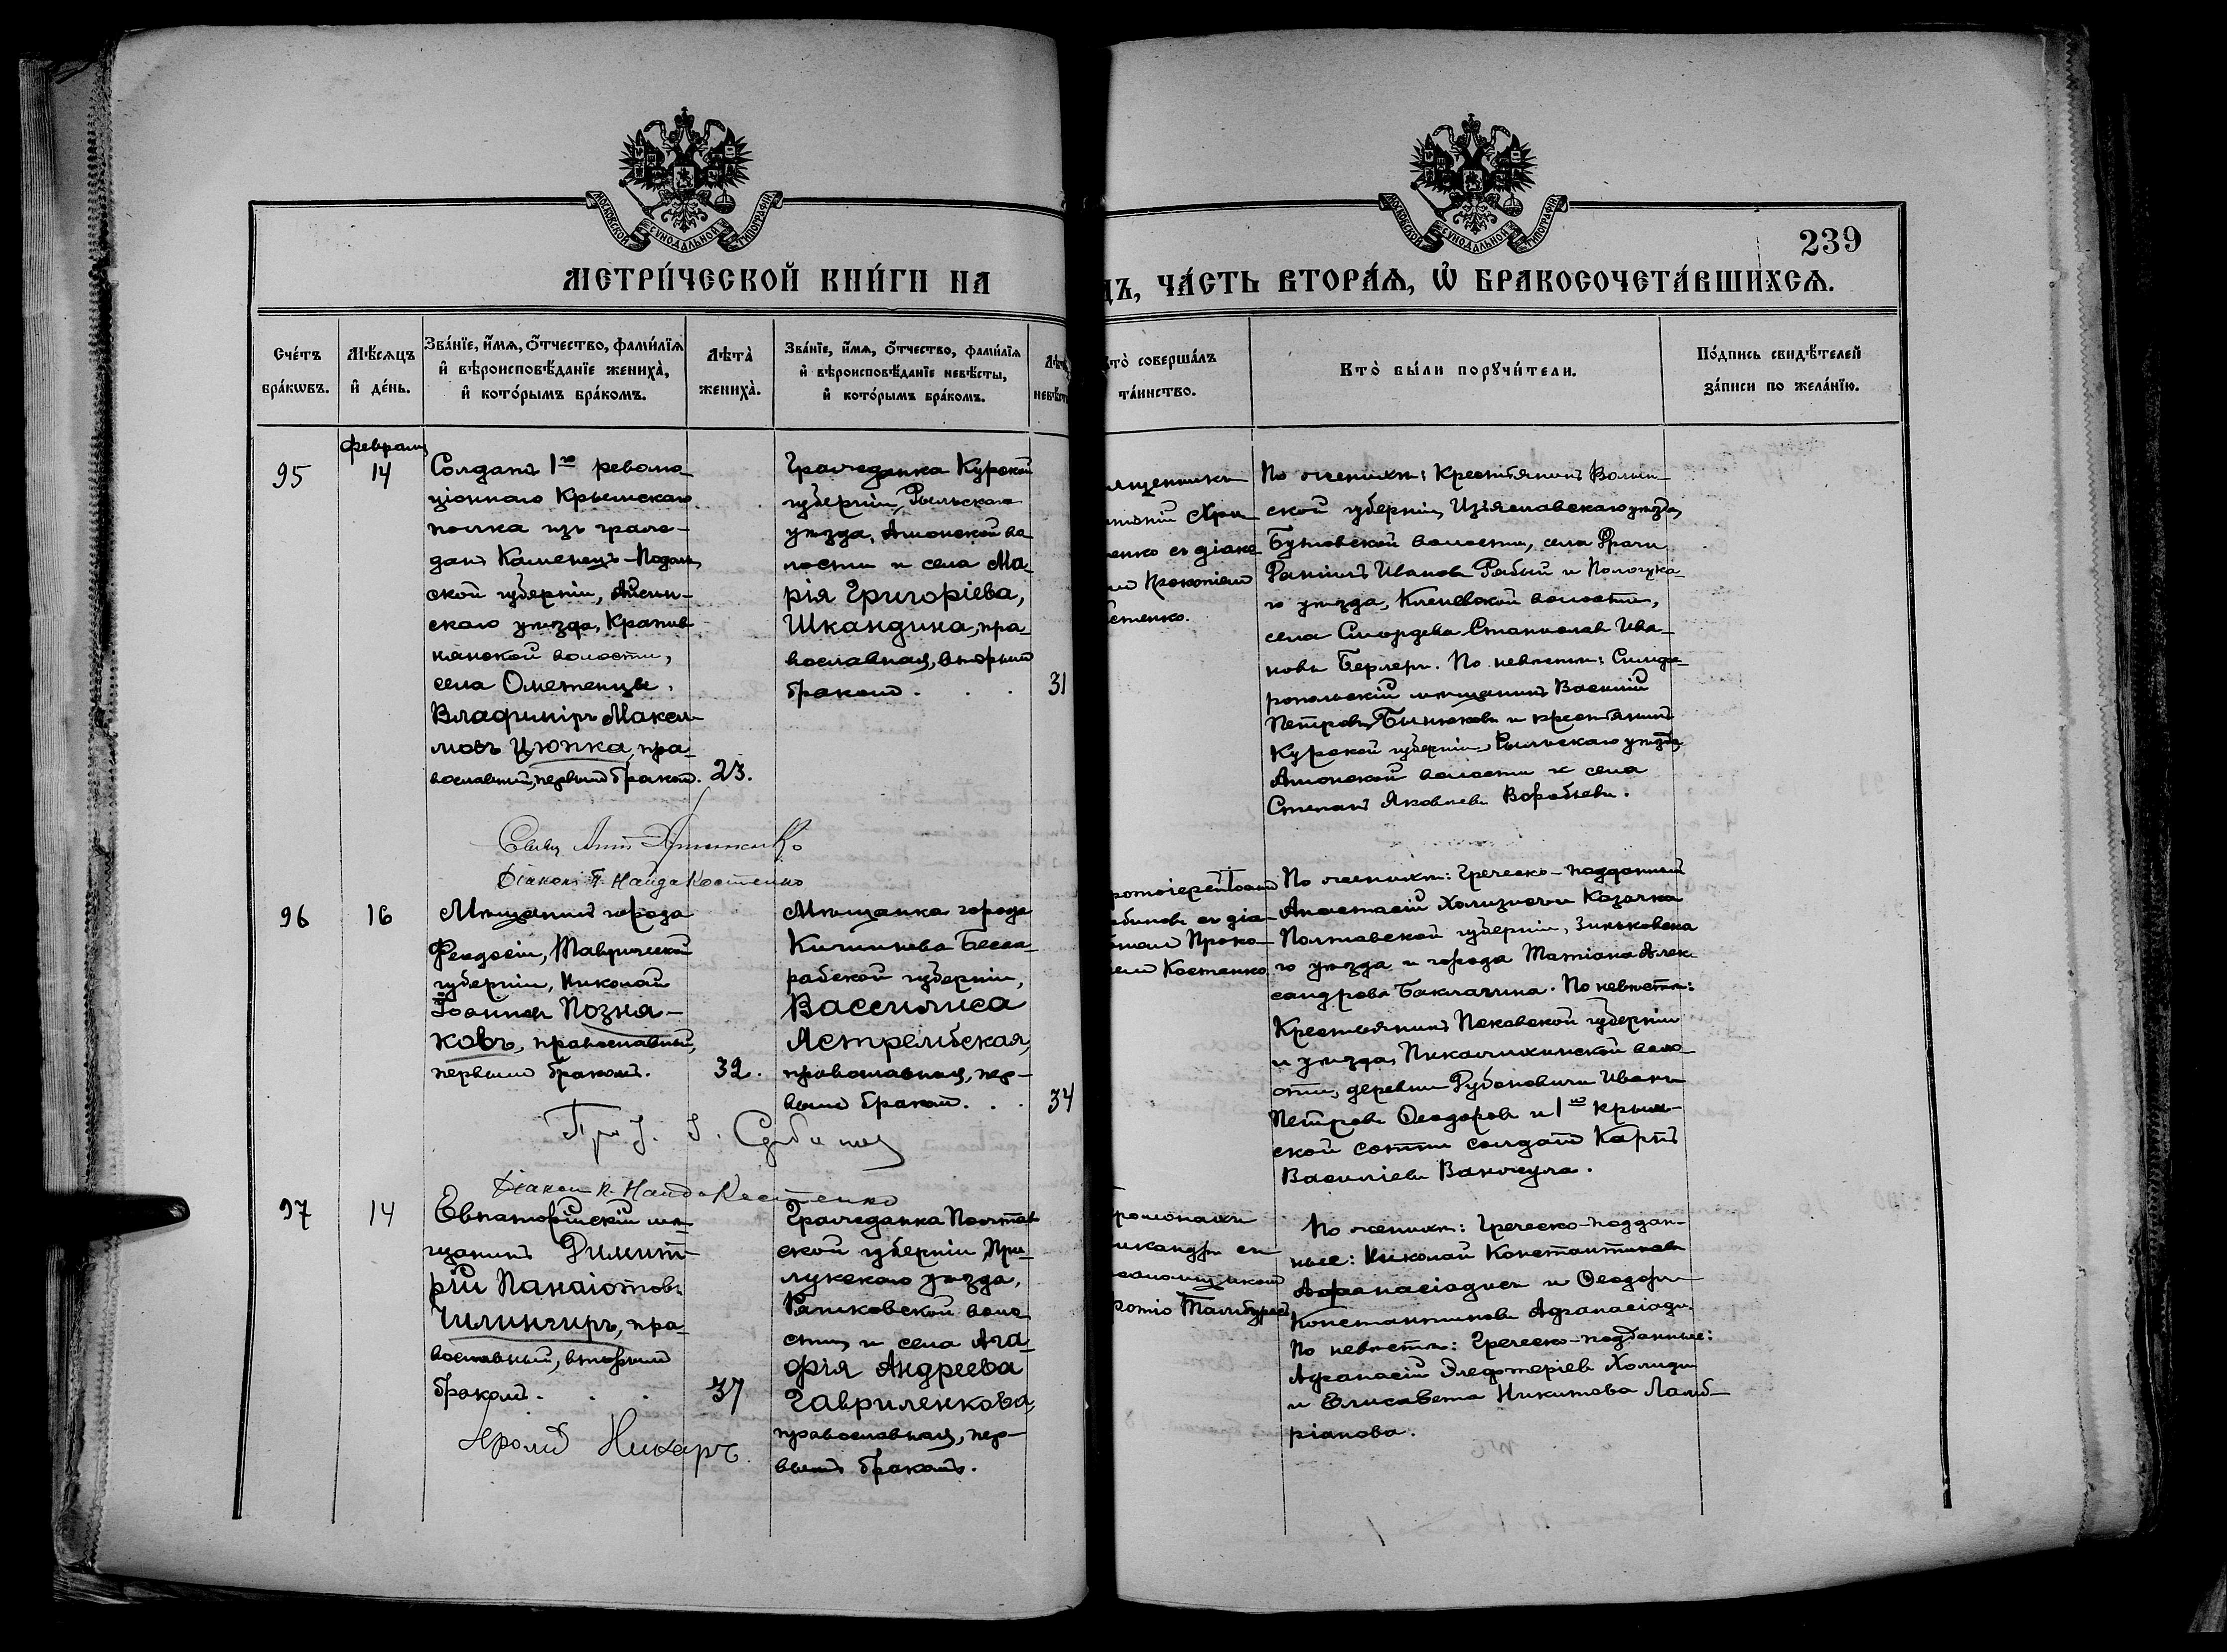 МОСКОВСКОЙ СУНОДАЛЬНОЙ ТИПОГРАФІИ
МОСКОВСКОЙ СУНОДАЛЬНОЙ ТИПОГРАФІИ
239
МЕТРИ́ЧЕСКОЙ КНИ́ГИ НА
ДЪ, ЧА́СТЬ ВТОРА́Ѧ, Ѡ҆ БРАКОСОЧЕТА́ВШИХСѦ.
Сче́тъ бра́кѡвъ.
Мѣ́сѧцъ и҆ де́нь.
Зва́нїе, и҆́мѧ, ѻ҆́тчество, фами́лїѧ
и҆ вѣроисповѣ́данїе жениха̀,
и҆ кото́рымъ бра́комъ.
Лѣта̀ жениха̀.
Зва́нїе, и҆́мѧ, ѻ҆́тчество, фами́лїѧ
и҆ вѣроисповѣ́данїе невѣ́сты,
и҆ кото́рымъ бра́комъ.
Лѣт
невѣст
то̀ соверша́лъ
та́инство.
Кто̀ бы́ли порꙋчи́тели.
По́дпись свидѣ́телей
за́писи по жела́нїю.
95
Февраль
14
Солдатъ 1го револю-
ціоннаго Крымскаго
полка изъ граж-
данъ Каменецъ-Подоль
ской губерніи,
скаго уѣзда, Крапив
нянской волости,
села Ометенцы,
Владиміръ Макси-
мовъ Цюпка, пра-
вославный, первымъ бракомъ.
23.
Гражданка Курской
губерніи, Рыльскаго
уѣзда, Амонской во
лости и села Ма-
рія Григоріева,
Шкандина, пра-
вославная, вторымъ
бракомъ.
31
ященникъ
енко съ діако
Прокопіемъ
стенко.
По женихѣ: Крестьянинъ Волын-
ской губерніи, Изяславскаго уѣзда,
волости, села
Иванов Рябый и
го уѣзда, волости,
села Станислав Ива-
новъ. По невѣстѣ: Симфе-
ропольскій мѣщанинъ Василій
Петровъ Бинюковъ и крестьянинъ
Курской губерніи, Рыльскаго уѣзда
Амонской волости и села
Степанъ Яковлевъ Воробьевъ.
Діаконъ П. Найда Костенко
96
16
Мѣщанинъ города
Феодосіи, Таврической
губерніи, Николай
Іоанновъ Позня-
ковъ, православный,
первымъ бракомъ.
32.
Мѣщанка города
Кишинева Бесса-
рабской губерніи,
Вассилиса
Ястрембская,
православная, пер-
вымъ бракомъ.
34
ротоіерей Іоаннъ
рбиновъ съ діа-
Проко-
Костенко
По женихѣ: Греческо-подданный
Анастасій и Казачка
Полтавской губерніи, Зиньковска
го уѣзда и города Татіана Алек-
сандрова. По невѣстѣ:
Крестьянинъ Псковской губерніи
и уѣзда, воло-
сти, деревни Иванъ
Петровъ Ѳеодоровъ и 1й крым-
ской сотни солдатъ Карпъ
Васильевъ.
Діаконъ П. Найда Костенко
97
14
Евпаторійскій мѣ
щанинъ Димит-
рій Панаіотовъ
Чилингиръ, пра-
вославный, вторымъ
бракомъ.
37
Гражданка Полтав
ской губерніи, При-
лукскаго уѣзда,
волос
сти, и села Ага-
фія Андреева
Гавриленкова,
православная, пер-
вымъ бракомъ.
ромонахъ
икандръ съ
По женихѣ: Греческо-поддан-
ные: Николай Константиновъ
Афанасіадисъ и Ѳеодоръ
Константиновъ Афанасіади.
По невѣстѣ: Греческо-подданные:
Афанасій Элефтеріевъ
и Елисавета Никитова Ламб-
ріанова.